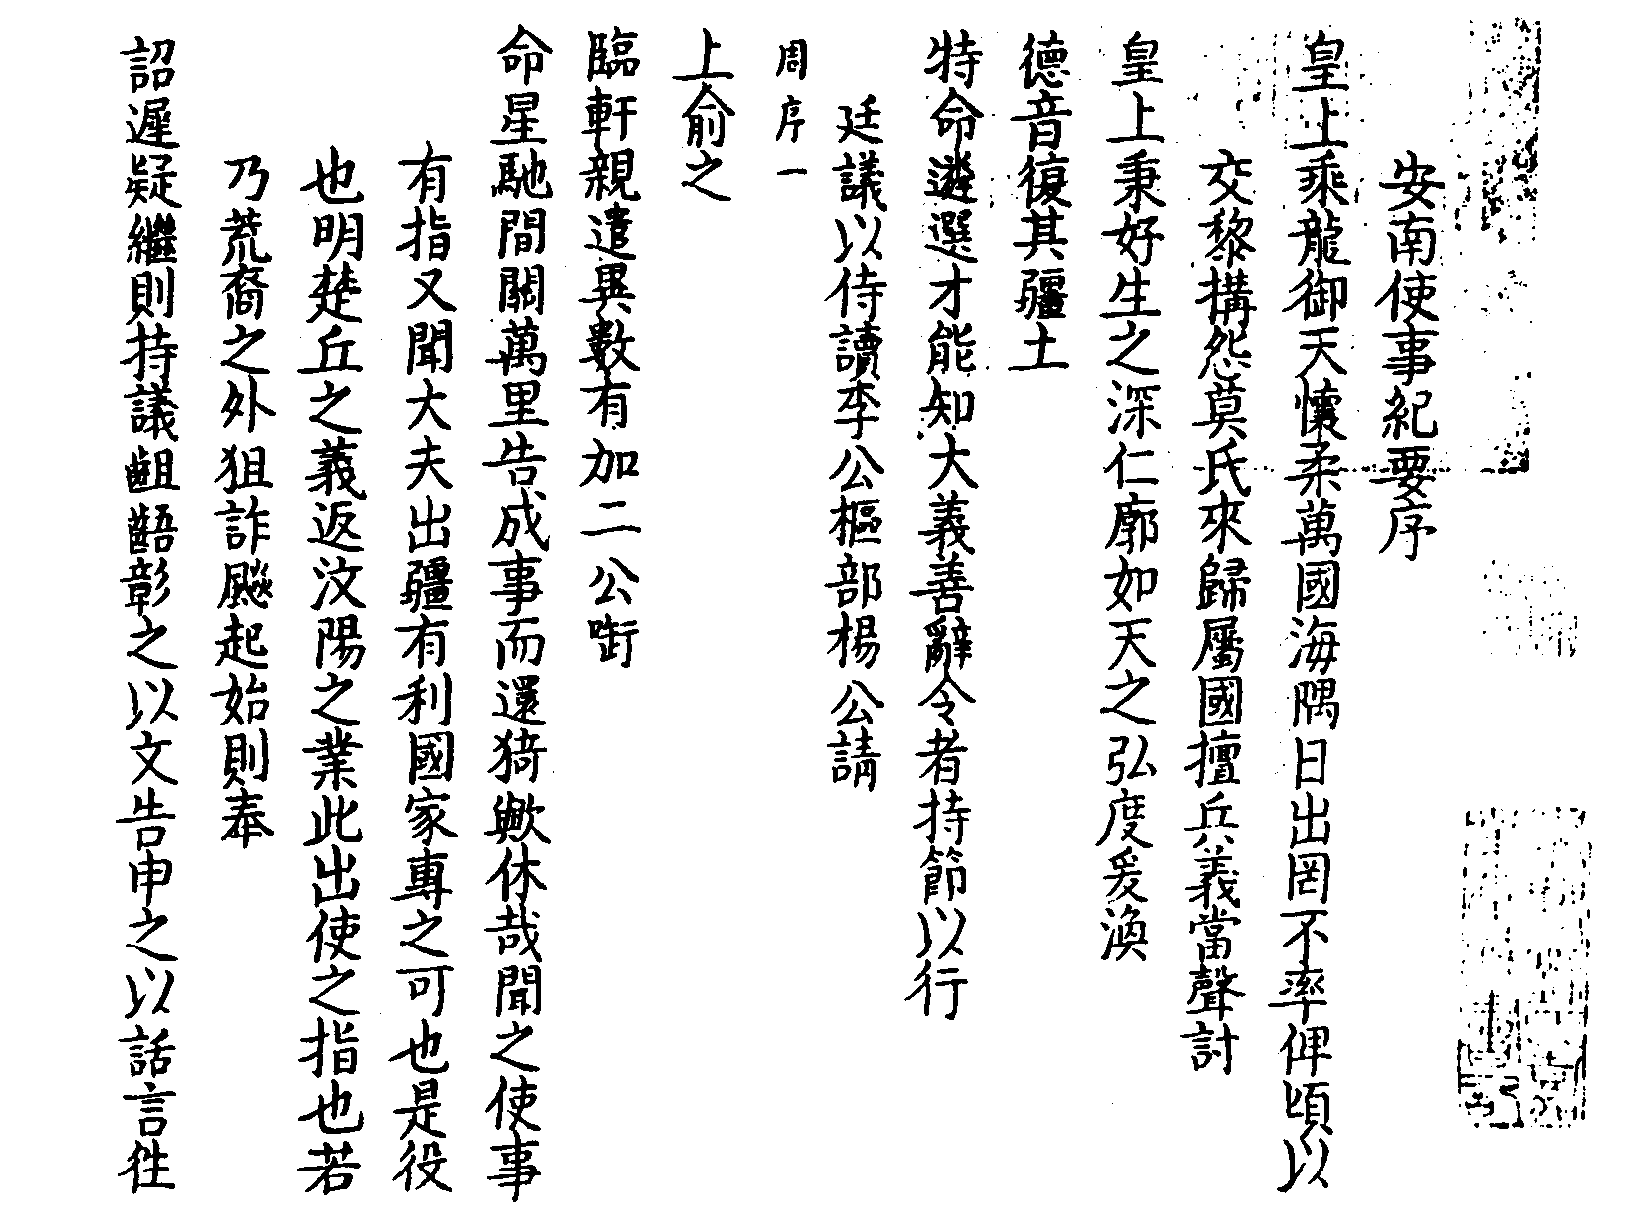 安南使事紀要序
皇上乘龍御天懷柔萬國海隅日出罔不率俾頃以
交黎搆怨莫氏來歸屬國擅兵義當聲討
皇上秉好生之深仁廓如天之弘度爰渙
德音復其疆土
特命遴選才能知大義善辭令者持節以行
廷議以侍讀李公樞部楊公請
周序一
上俞之
臨軒親遣異數有加二公啣
命星馳間關萬里告成事而還猗歟休哉聞之使事
有指又聞大夫出疆有利國家專之可也是役
也明楚丘之義返汶陽之業此出使之指也若
乃荒裔之外狙詐飈起始則奉
詔遲疑繼則持議齟齬彰之以文告申之以話言往